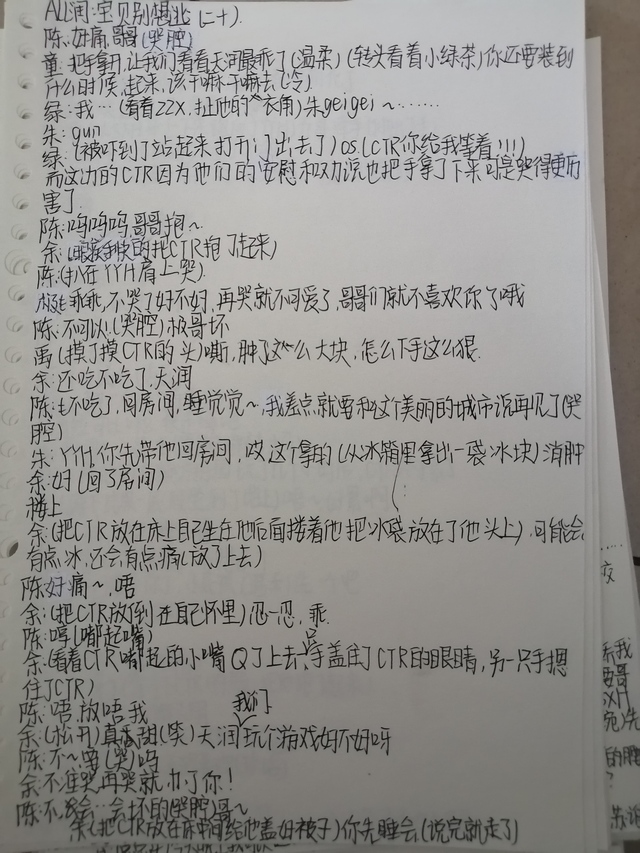 ALL润:宝贝别想逃(二十).
陈:好痛,哥哥(哭腔)
童:把手拿开,让我们看看天润最乖了(温柔)(转头看着小绿茶)你还要装到
什么时候,起来,该干嘛干嘛去(冷)
绿:我…(看着ZZX,扯他的衣角)朱geigei~……
朱:gun
绿:(被吓到了站起来打开门出去了)OS(CTR你给我等着!!!)
而这边的CTR因为他们的安慰和劝说也把手拿了下来可是哭得更厉
害了
陈:呜呜呜,哥哥抱~
余:(眼疾手快的把CTR抱了起来)
陈:(趴在YYH肩上哭)
极:乖乖,不哭了好不好,再哭就不可爱了,哥哥们就不喜欢你了哦
陈:不可以!(哭腔)极哥坏
禹(摸了摸CTR的头)嘶,肿了这么大块,怎么下手这么狠.
余:还吃不吃了,天润
陈:不吃了,回房间,睡觉觉~,我差点就要和这个美丽的城市说再见了(哭
腔)
朱:YYH,你先带他回房间,哎这个拿的(从冰箱里拿出一袋冰块)消肿
余:好(回了房间)
楼上
余:(把CTR放在床上自己坐在他后面搂着他把冰袋放在了他头上)可能会
有点冰,还会有点痛(放了上去)
陈好痛~,唔
余:(把CTR放倒在自己怀里)忍一忍,乖
陈:哼(嘟起嘴)
余:(看着CTR嘟起的小嘴Q了上去,只手盖住了CTR的眼睛,另一只手摁
住了CTR)
陈:唔,放唔我
余:(松开)真香甜(笑)天润我们玩个游戏好不好呀
陈:不~要(哭)呜
余:不准哭,再哭就办了你!
陈:不,会…会坏的(哭腔)哥~
余:(把CTR放在床中间给他盖好被子)你先睡会(说完就走了)